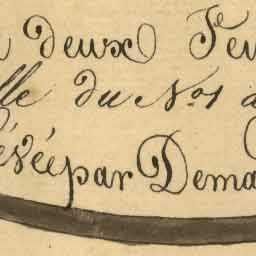 deux Feu
lle du No1
par Dema